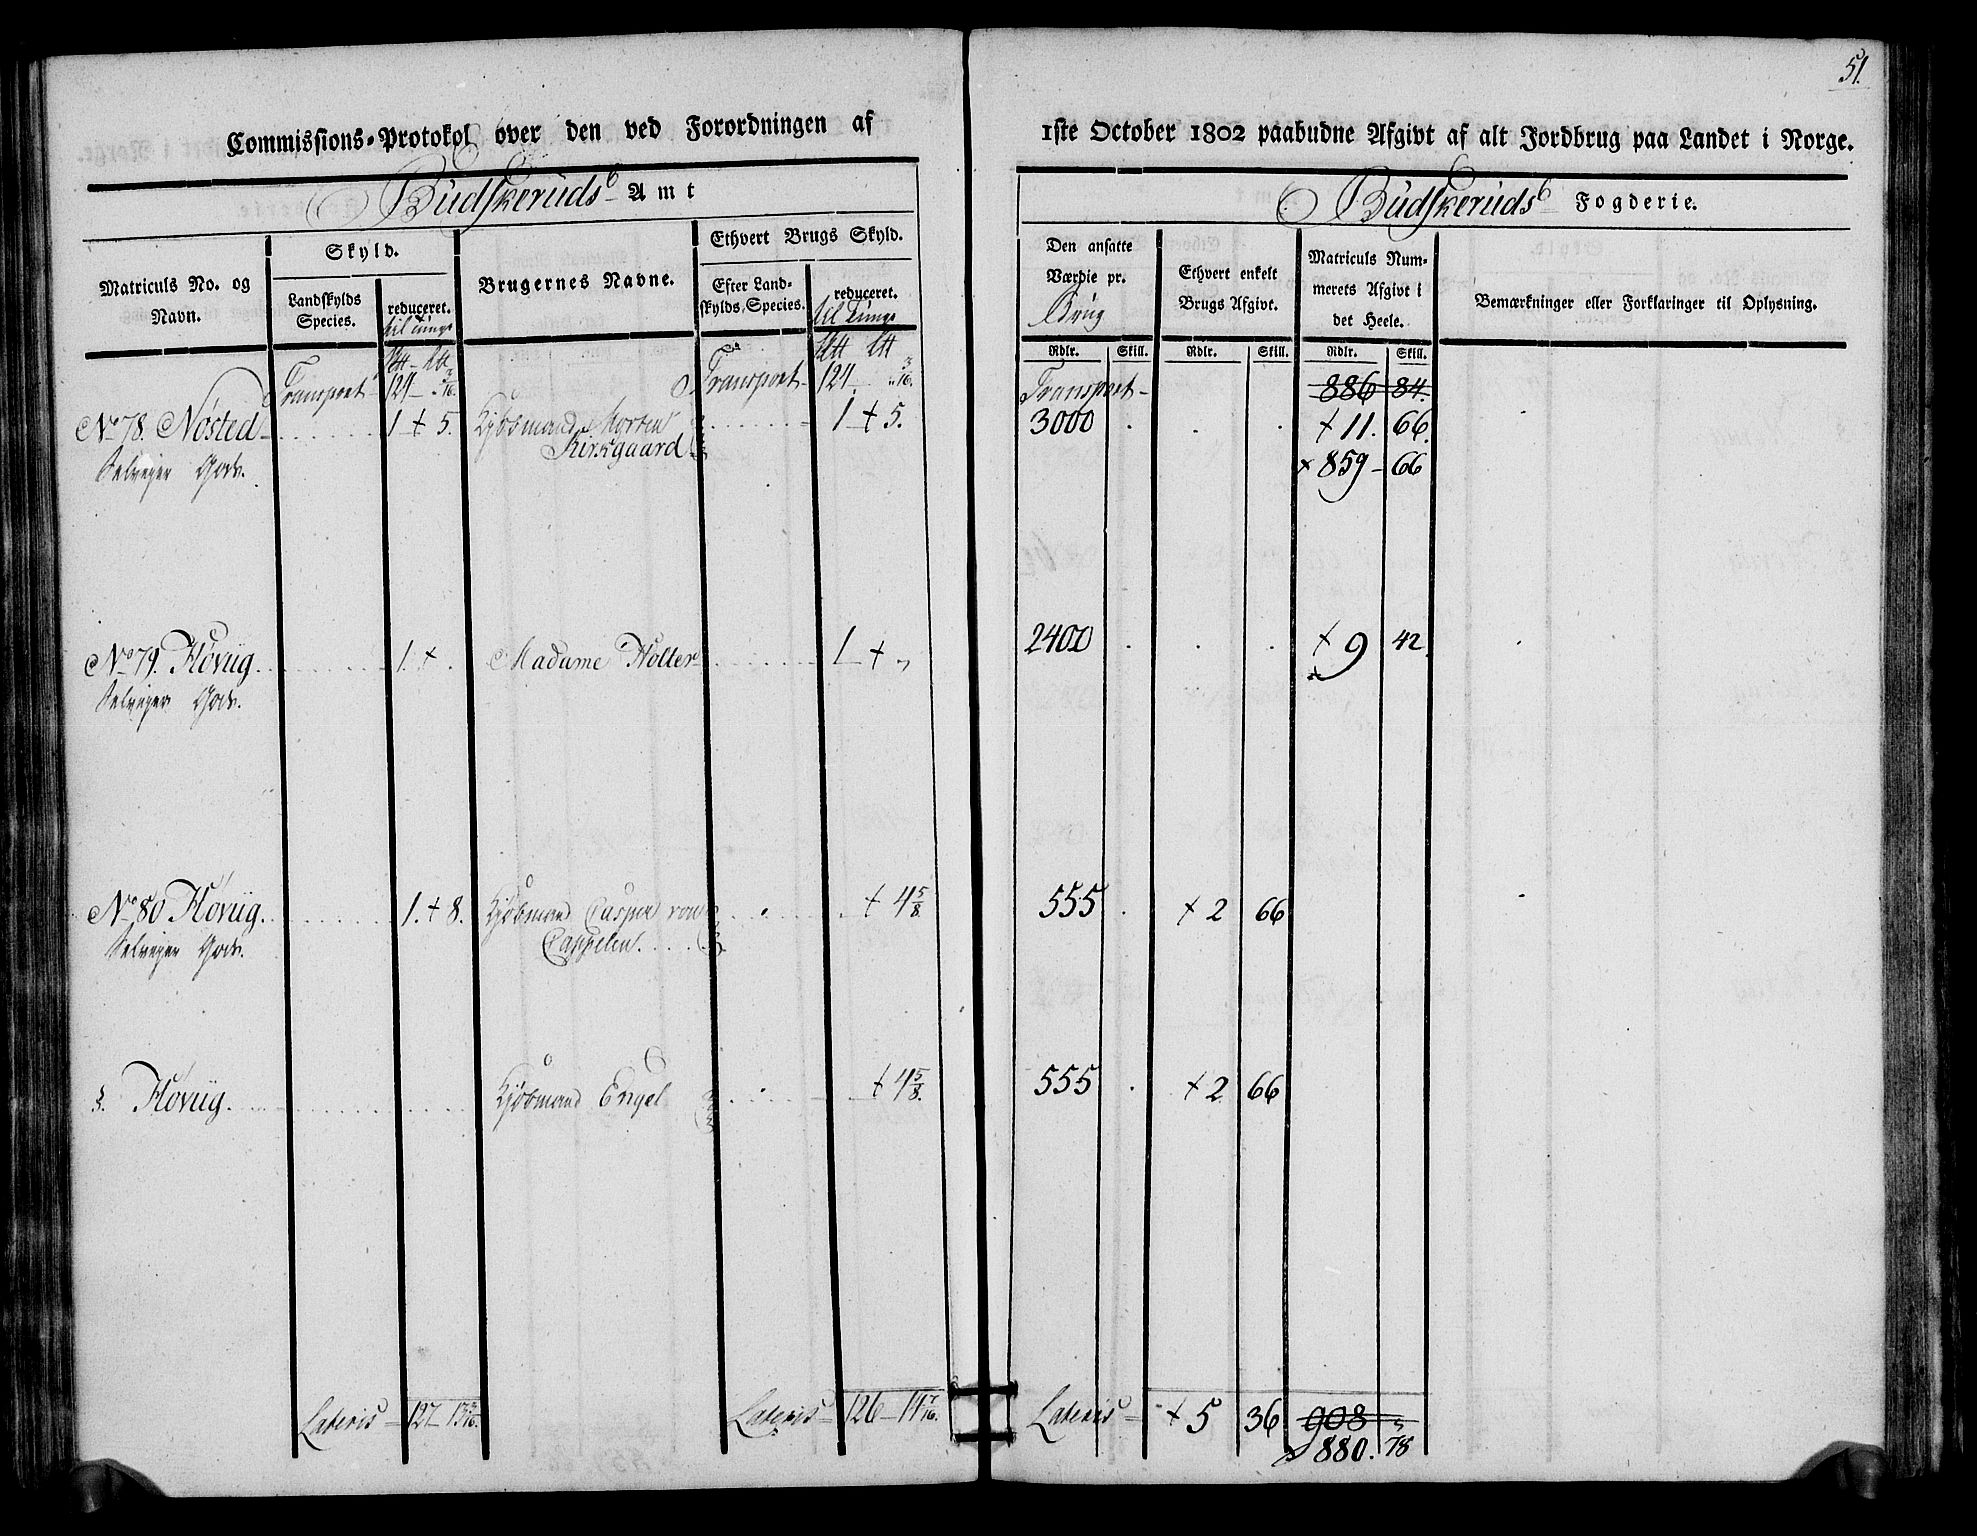 51.
Commissions-Protokol over den ved Forordningen af
1ste October 1802 paabudne Afgivt af alt Jordbrug paa Landet i Norge.
Budskeruds Amt
Budskeruds Fogderie.
Matriculs No. og Navn.
Skyld.
Landskylds Species.
reduceret.
til Tunge
Brugernes Navne.
Ethvert Brugs Skyld.
Efter Landskylds Species.
reduceret.
til Tunge
Den ansatte Værdie pr. Brug
Ethvert enkelt Brugs Afgivt.
Matriculs Nummerets Afgivt i det Heele.
Bemærkninger eller Forklaringer til Oplysning.
Rdlr. Skill. Rdlr. Skill. Rdlr. Skill.
Transport 124 Transport 124 Transport 886 84.
No 78. Nøsted 1 + 5. Kjøbmand Morten 1 + 5. 3000 + 11. 66.
Selveyer Gods. Kirkgaard + 859 66
No 79. Høviig 1. + Madame Holter 1 + 2400 + 9 42.
Selveyer Gods.
No 80 Høviig 1. + 8. Kjøbmand Casper von + 4 5/8. 555 + 2 66
Selveyer Gods. Cappelen
Høviig Kjøbmand Engel + 4 5/8. 555 + 2 66
Lateris 127 13 3/16. Lateris 126 14 7/16. Lateris + 5 36 908
880. 78